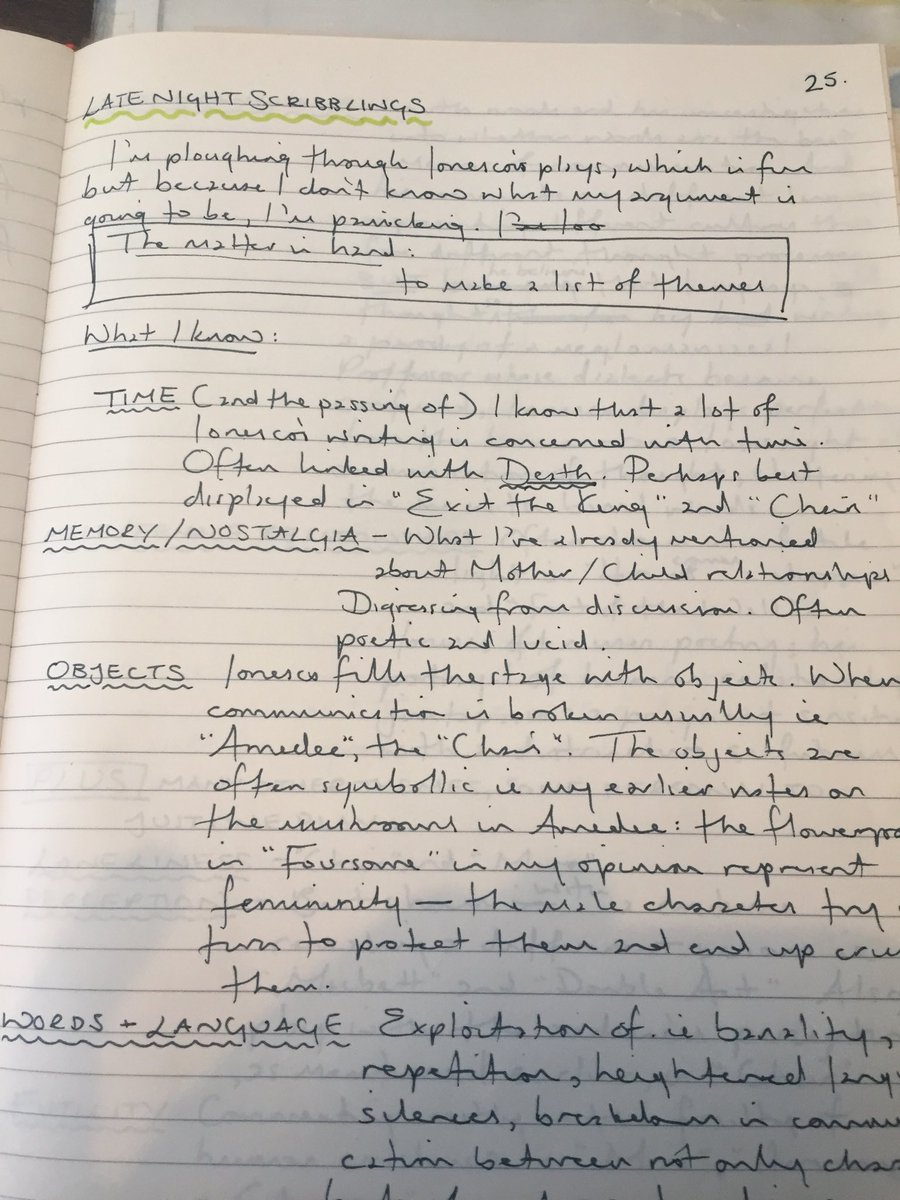 25.
LATE NIGHT SCRIBBLINGS
I'm ploughing through Ionesco's plays, which is fun
but because I don't know what my argument is
going to be, I'm panicking. But too
The matter in hand:
to make a list of themes
What I know:
TIME (and the passing of) I know that a lot of
Ionesco's writing is concerned with time.
Often linked with Death. Perhaps best
displayed in "Exit the King" and "Chairs"
MEMORY/NOSTALGIA - What I've already mentioned
about Mother/Child relationships
Digressing from discussion. Often
poetic and lucid.
OBJECTS Ionesco fills the stage with objects. When
communication is broken usually ie
"Amedee", the "Chairs". The objects are
often symbollic ie my earlier notes on
the mushrooms in Amedee: the flowerpo
in "Foursome" in my opinion represent
femininity — the male character try
turn to protect them and end up cru
them.
WORDS + LANGUAGE Exploitation of. ie banality,
repetition, heightened lang
silences, breakdown in commu
cation between not only cha